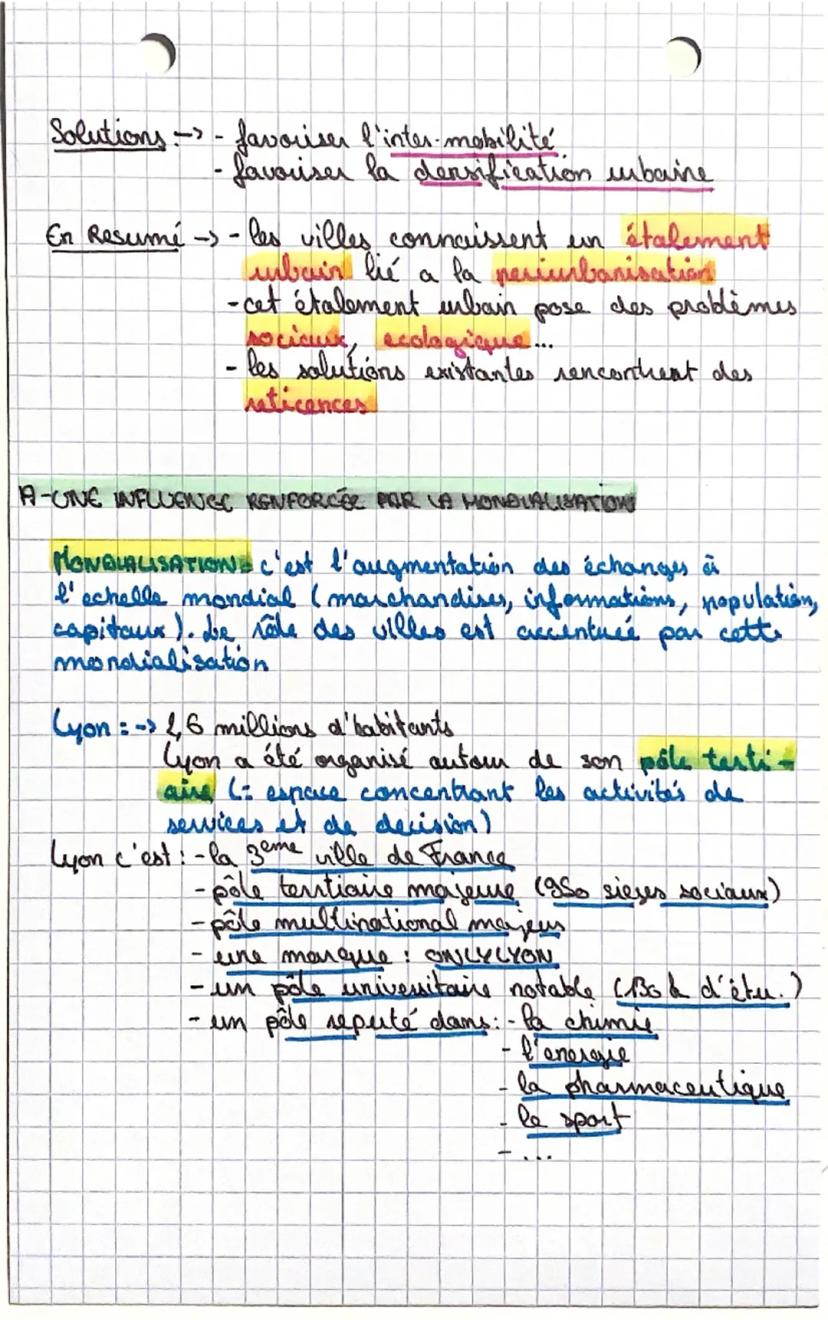 Solutions :-> - favoriser l'inter-mobilité
- favoriser la densification urbaine
En Resumé -> - les villes connaissent un étalement
urbain lié a la periurbanisation
- cet étalement urbain pose des problèmes
sociaux, ecologique...
- les solutions existantes rencontrent des
reticences
A-UNE INFLUENCE RENFORCÉE PAR LA MONDIALISATION
MONDIALISATION= c'est l'augmentation des échanges à
l'echelle mondial (marchandises, informations, population,
capitaux). Le rôle des villes est accentué par cette
mondialisation
Lyon : -> 1,6 millions d'habitants
Lyon a été organisé autour de son pôle terti-
aire (= espace concentrant les activités de
services et de decision)
Lyon c'est : - la 3eme ville de France
- pôle tertiaire majeur (950 sieges sociaux)
- pôle multinational majeur
- une marque : ONLYLYON
- un pôle universitaire notable (130k d'étu.)
- un pôle reputé dans : - la chimie
- l'energie
- la pharmaceutique
- le sport
- ...